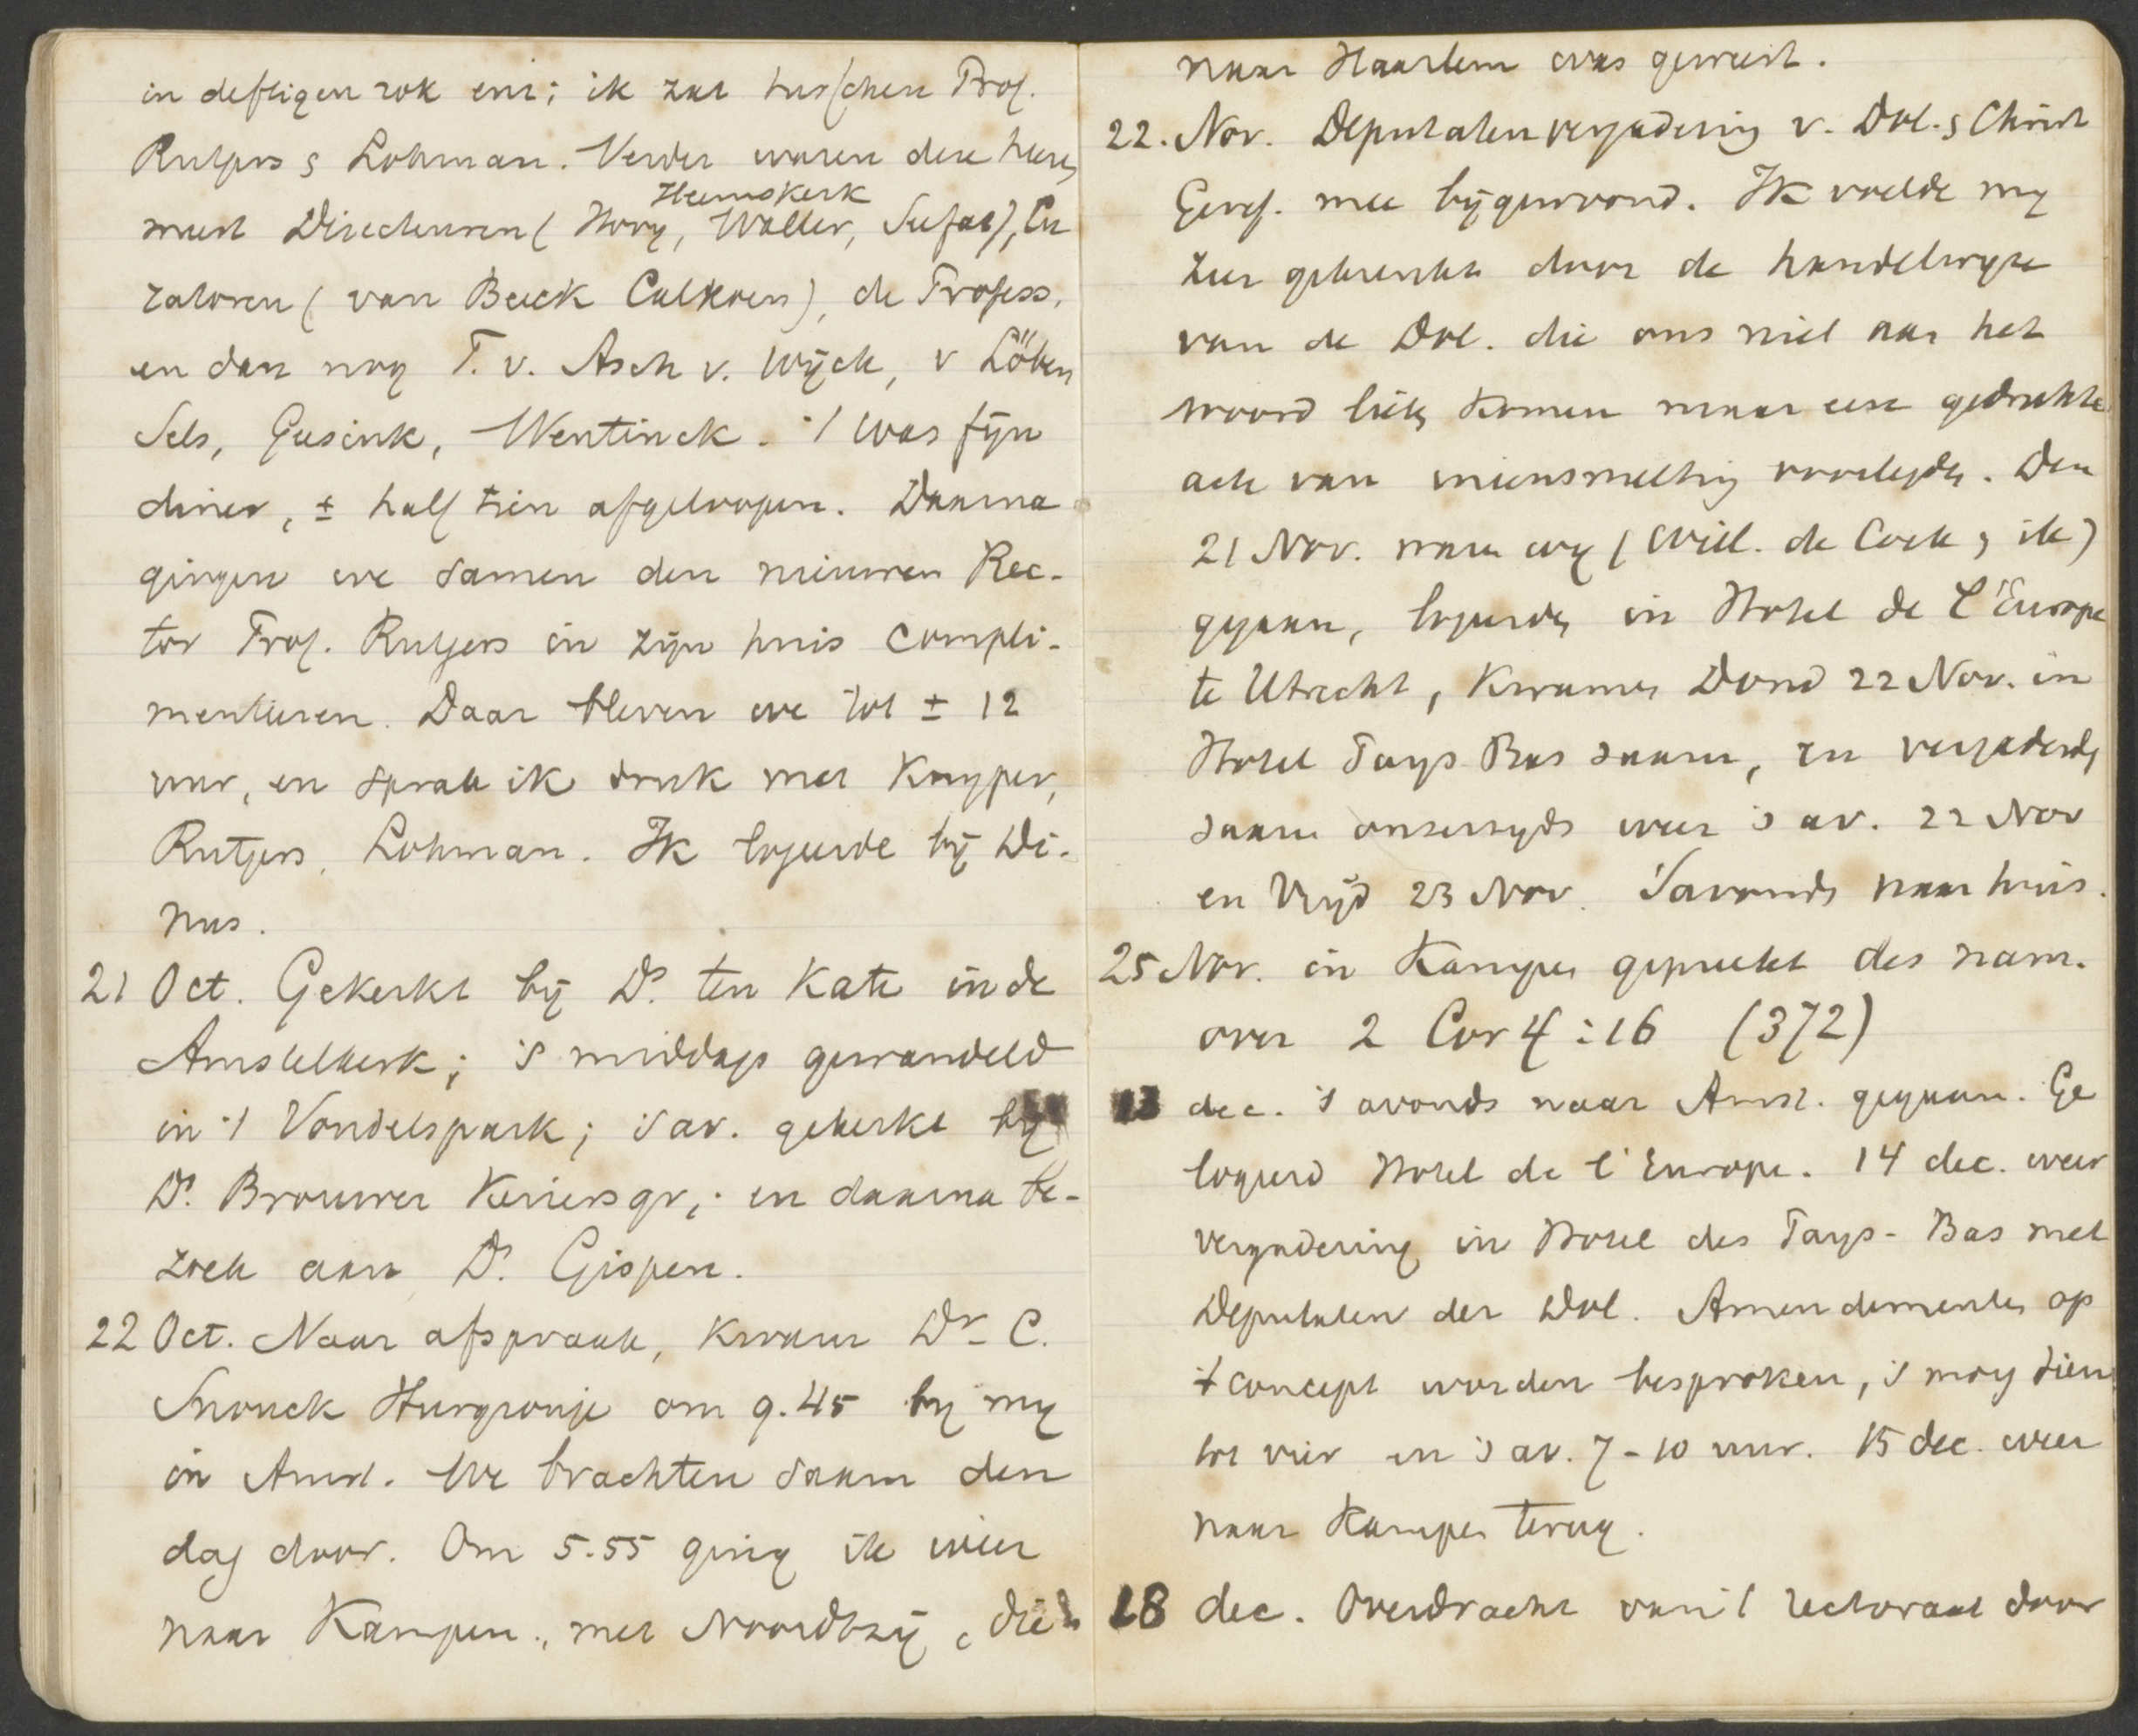 in deftigen rok enz; ik zat tusschen Prof.
Rutgers & Lohman. Verder waren deze heeren
meest Directeuren (Hovy, Heemskerk, Waller, Seefat), Cu
ratoren (van Beeck Calkoen), de Profess.
en dan nog T. v. Asch v. Wijck, v Löben
Sels, Geesink, Wentinck. 't was fijn
diner, ± half tien afgeloopen. Daarna
gingen we samen den nieuwen Rec-
tor Prof. Rutgers in zijn huis compli-
menteeren. Daar bleven we tot ± 12
uur, en sprak ik druk met Kuyper,
Rutgers, Lohman. Ik logeerde bij Di-
nus.
21 Oct. Gekerkt bij Ds. ten Kate in de
Amstelkerk; 's middags gewandeld
in 't Vondelspark; 's av. gekerkt bij
Ds. Brouwer Keizersgr,; en daarna be-
zoek aan Ds. Gispen.
22 Oct. Naar afspraak, kwam Dr. C.
Snouck Hurgronje om 9.45 by my
in Amst. We brachten saam den
dag door. Om 5.55 ging ik weer
naar Kampen, met Noordtzij, die
naar Haarlem was geweest.
22. Nov. Deputatenvergadering v. Dol. & Christ
Geref. mee bijgewoond. Ik voelde my
zeer gekrenkt door de handelwyze
van de Dol. die ons niet aan het
woord liet komen maar eene gedrukte
acte van ineensmelting voorlegde. Den
21 Nov. waren wy (Wiel. de Cock & ik)
gegaan, logeerden in Hotel de L'Europe
te Utrecht, kwamen Dond 22 Nov. in
Hotel Pays Bas saam, en vergaderden
saam onzerzyds weer 's av. 22 Nov
en Vrijd 23 Nov. 's avonds naar huis.
25 Nov. in Kampen gepreekt des nam.
over 2 Cor 4:16 (372)
13 dec. 's avonds naar Amst. gegaan. Ge
logeerd Hotel de l'Europe. 14 dec. weer
vergadering in Hotel des Pays-Bas met
Deputaten der Dol. Amendementen op
't concept worden besproken, 's morg tien
tot vier en 's av. 7-10 uur. 15 dec. weer
naar Kampen terug.
18 dec. Overdracht van 't rectoraat door